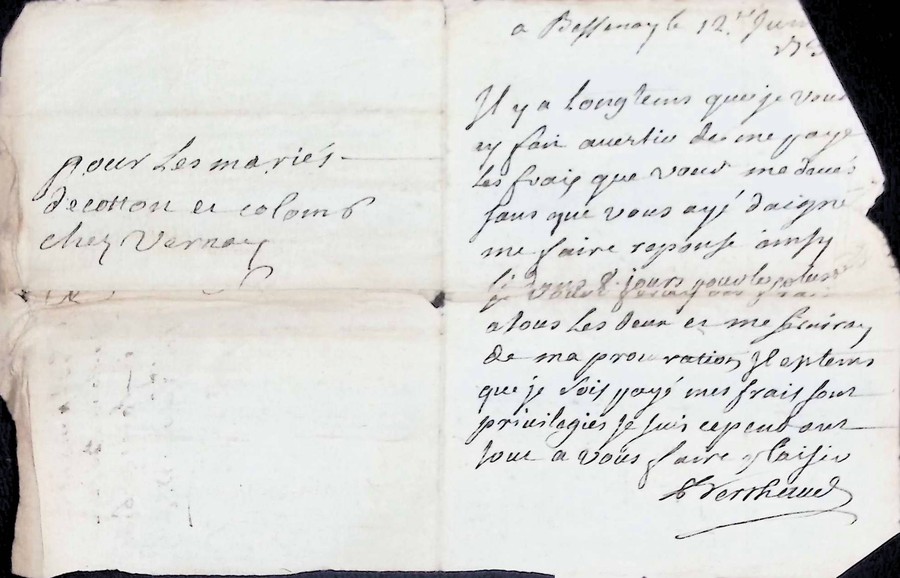 pour Les mariés
decotton et colomb
chez Vernay
a Bessenay le 12 Juin
Il y a Longtems que je vous
ay fait avertir de me paye
Les frais que vous me devés
sans que vous ayé daigné
me faire reponse ainsy
si dans 8 jours pour les plus
je vous feray des frais
a tous Les deux et me serviray
de ma procuration Il es tems
que je sois payé mes frais sont
privilegies je suis cependant
tout a vous faire plaisir